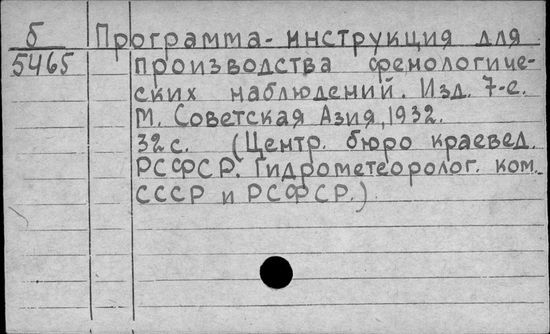 б Программа-инструкция для
5465 производства фенологиче-
ских наблюдений. Изд. 7-е.
М. Советская Азия, 1932.
32 с. (Центр. бюро краевед.
РСФСР. Гидрометеоролог. ком.
СССР и РСФСР.)